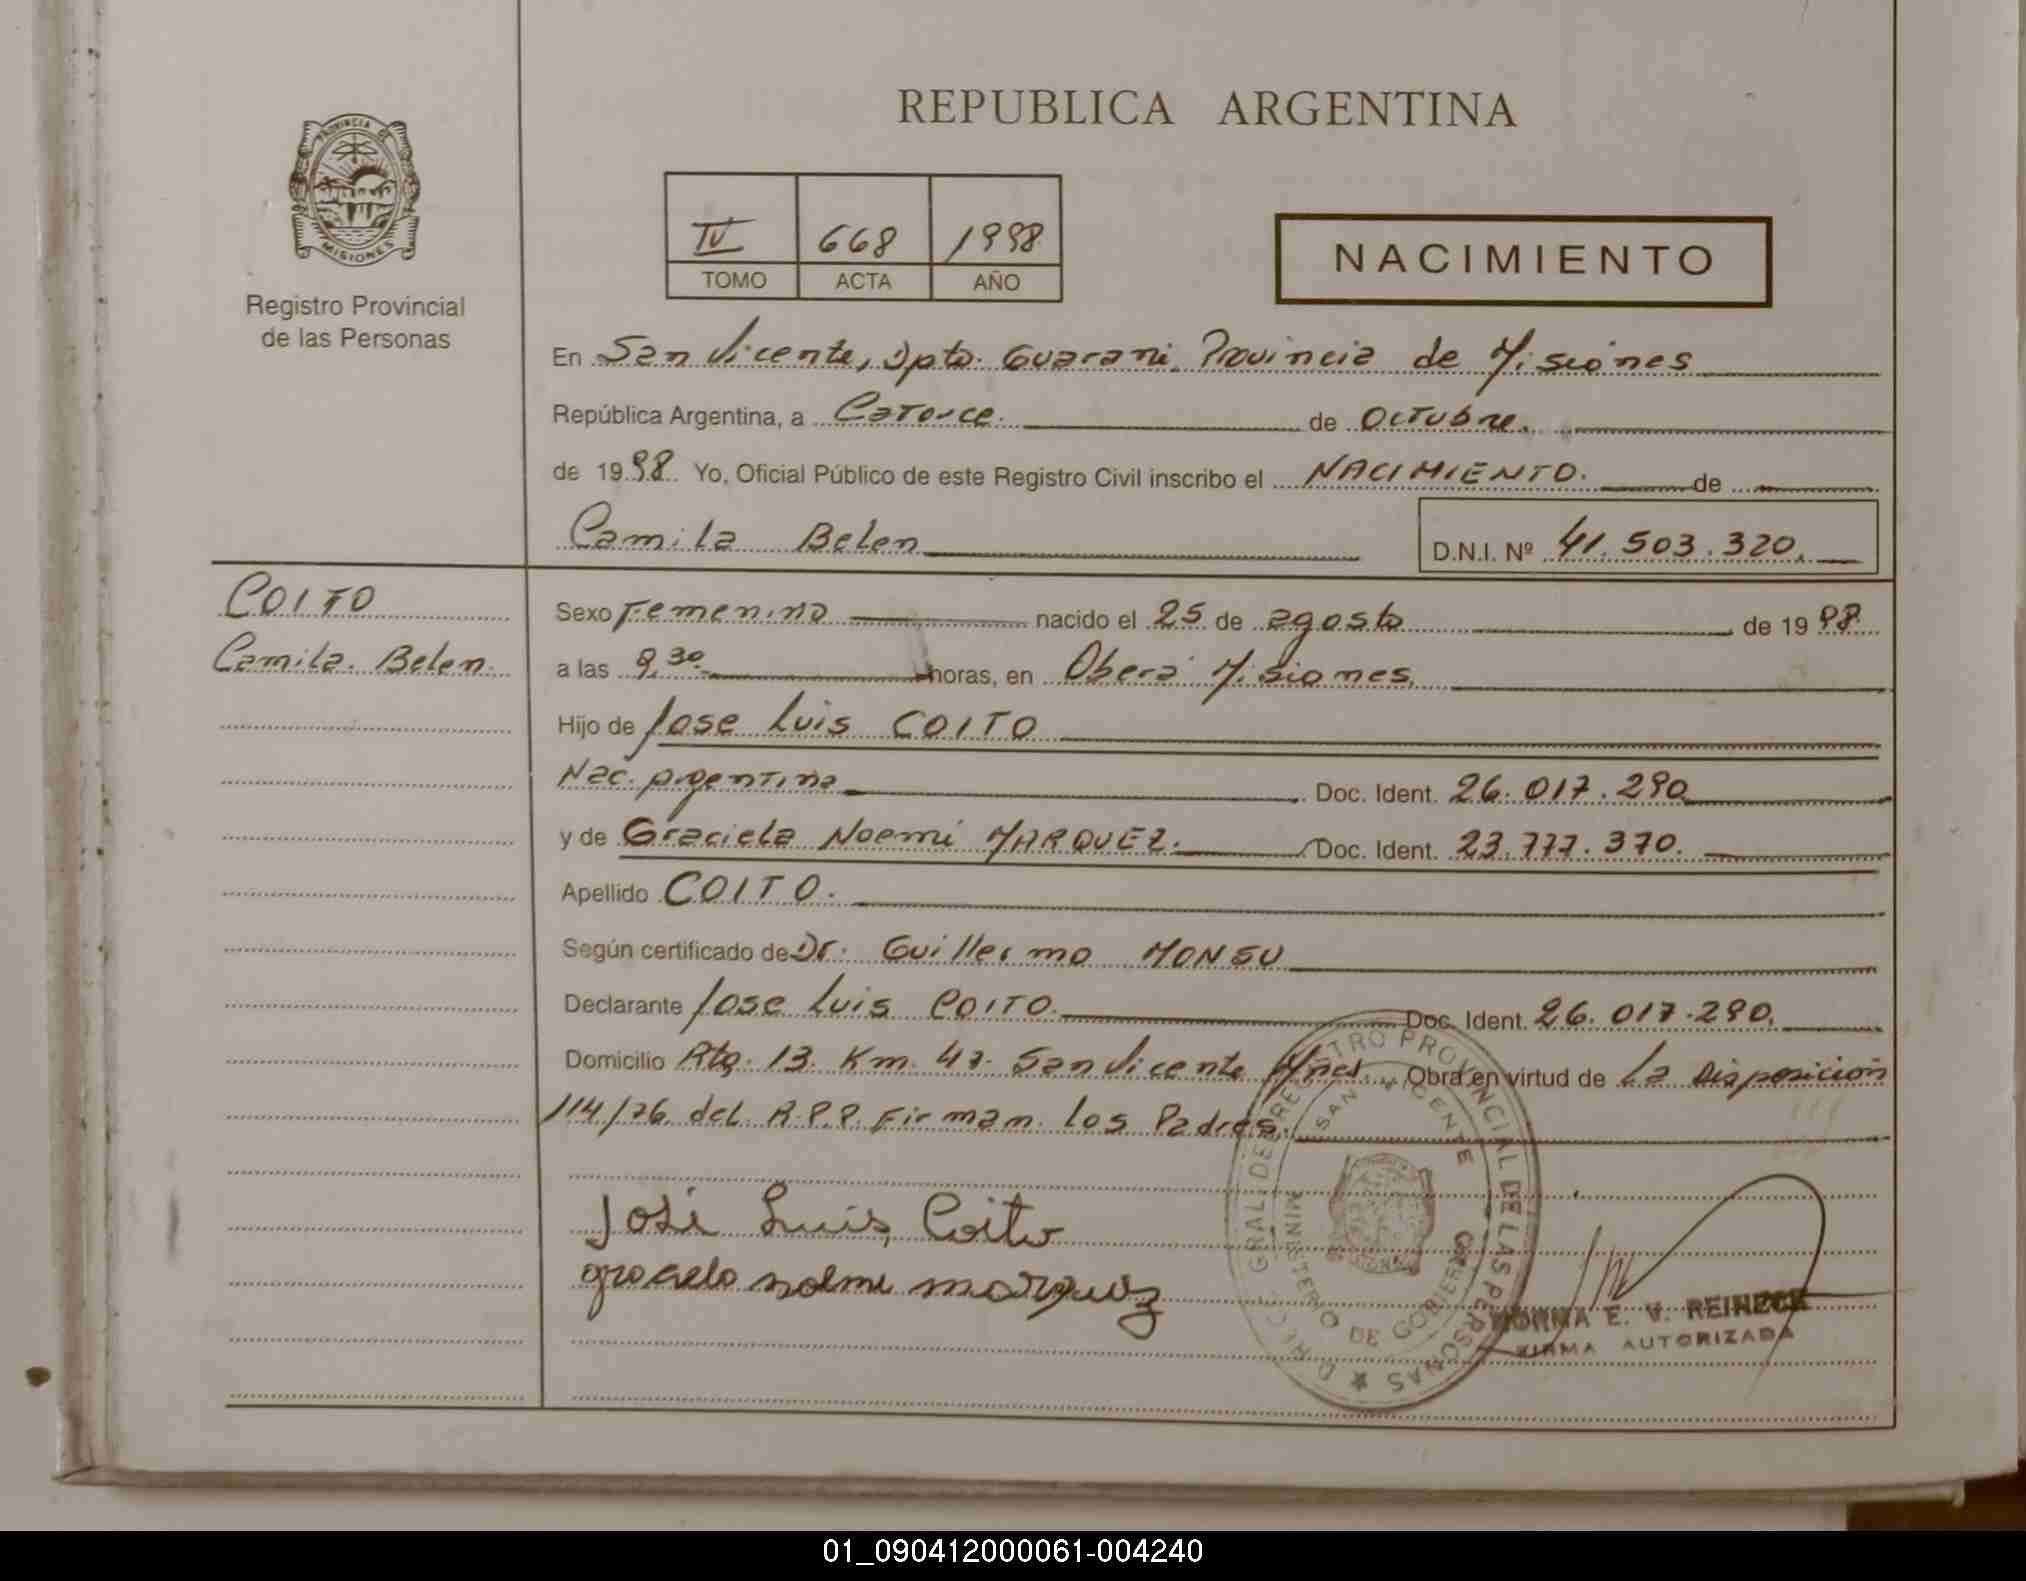 REPUBLICA ARGENTINA
PROVINCIA DE
MISIONES
Registro Provincial
de las Personas
IV 668 1998
TOMO ACTA AÑO
NACIMIENTO
En San Vicente, Dpto. Guarani, Provincia de Misiones
República Argentina, a Catorce. de Octubre.
de 1998 Yo, Oficial Público de este Registro Civil inscribo el NACIMIENTO. de
Camila Belen D.N.I. Nº 41.503.320.
COITO
Camila Belen.
Sexo Femenino nacido el 25 de agosto de 1998
a las 9,30 horas, en Oberá Misiones.
Hijo de Jose Luis COITO
Nac. argentina Doc. Ident. 26.017.290
y de Graciela Noemi MARQUEZ. Doc. Ident. 23.777.370.
Apellido COITO.
Según certificado de Dr. Guillermo MONSU
Declarante Jose Luis COITO. Doc. Ident. 26.017.290.
Domicilio Rta. 13. Km. 47. San Vicente Mnes. Obra en virtud de La Disposición
114/76 del R.P.P. Firman los Padres.
José Luis Coito
graciela noemi marquez
DIREC. GRAL. DEL REGISTRO PROVINCIAL DE LAS PERSONAS
SAN VICENTE
MINISTERIO DE GOBIERNO
NORMA E. V. REINECK
FIRMA AUTORIZADA
01_090412000061-004240